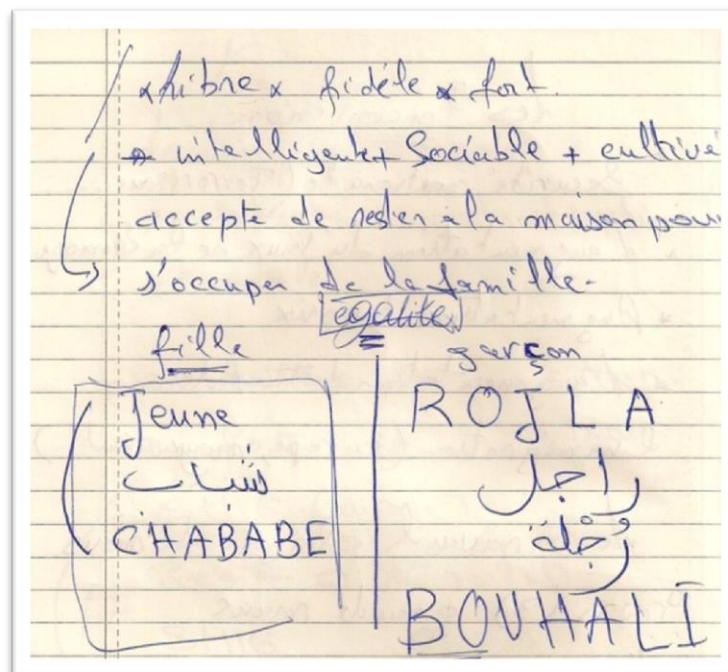 x libre x fidéle x fort.
+ intelligente + Sociable + cultivé
accepte de rester à la maison pour
s'occuper de la famille.
egalité
fille garçon
Jeune ROJLA
شباب راجل
CHABABE رُجْلة
BOUHALI